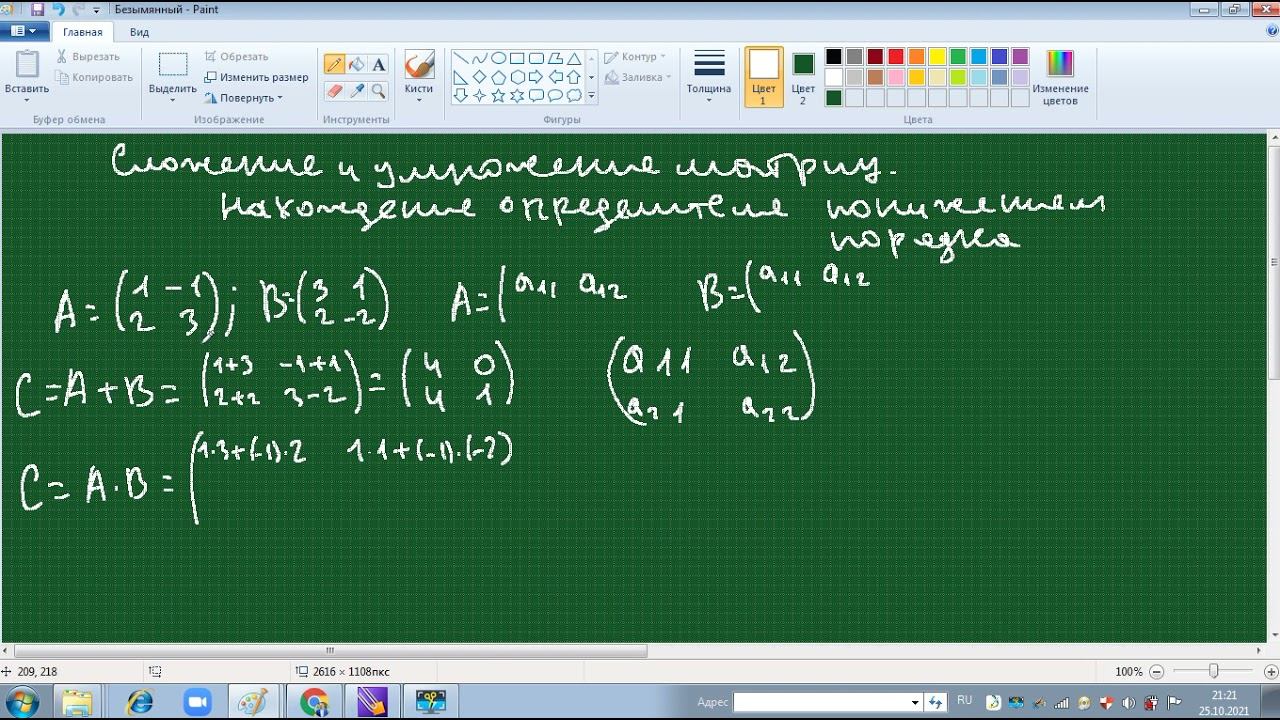 Безымянный - Paint
Главная Вид
Вставить
Вырезать
Копировать
Буфер обмена
Выделить
Обрезать
Изменить размер
Повернуть
Изображение
Инструменты
Кисти
Фигуры
Контур
Заливка
Толщина
Цвет 1
Цвет 2
Цвета
Изменение цветов
Сложение и умножение матриц.
Нахождение определителя понижением
порядка
A = (1 -1; B = (3 1 A = (a11 a12 B = (a11 a12
2 3) 2 -2)
C = A + B = (1+3 -1+1 = (4 0 (a11 a12
2+2 3-2) 4 1) a21 a22)
C = A · B = (1·3+(-1)·2 1·1+(-1)·(-2)
209, 218 2616 × 1108пкс 100%
Адрес RU 21:21
25.10.2021